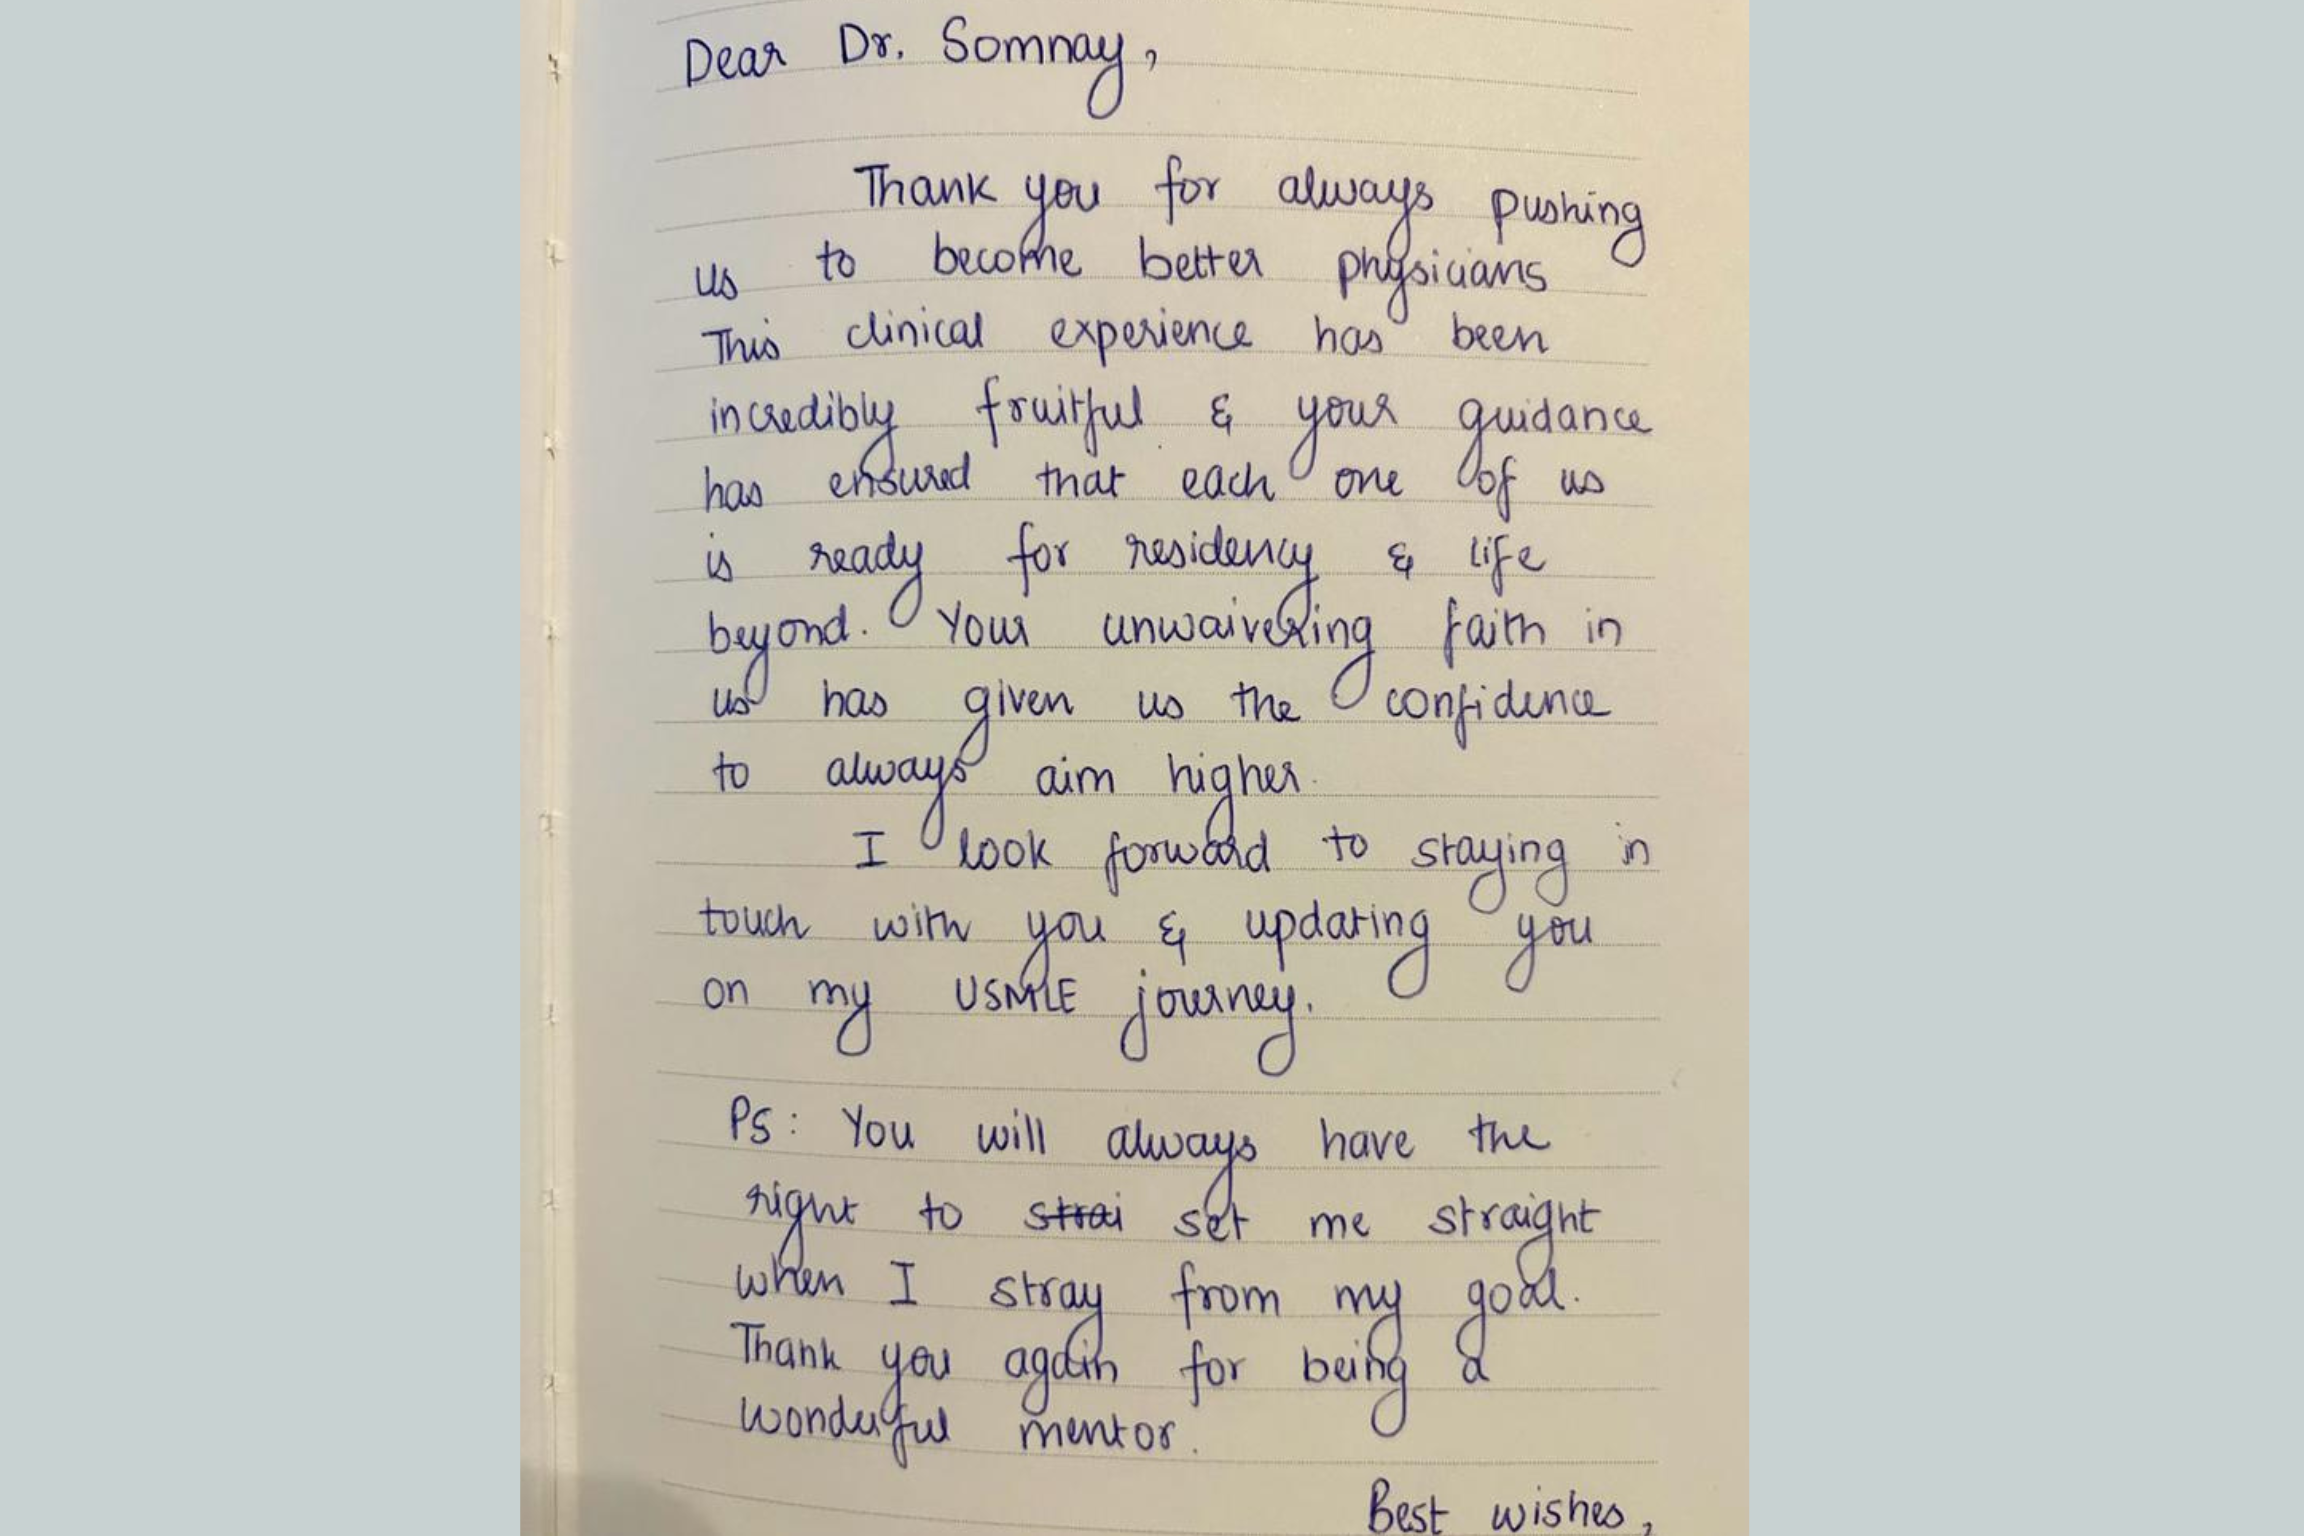 Dear Dr. Somnay,
Thank you for always pushing
us to become better physicians
This clinical experience has been
incredibly fruitful & your guidance
has ensured that each one of us
is ready for residency & life
beyond. Your unwaivering faith in
us has given us the confidence
to always aim higher.
I look forward to staying in
touch with you & updating you
on my USMLE journey.
PS: You will always have the
right to strai set me straight
when I stray from my goal.
Thank you again for being a
wonderful mentor.
Best wishes,